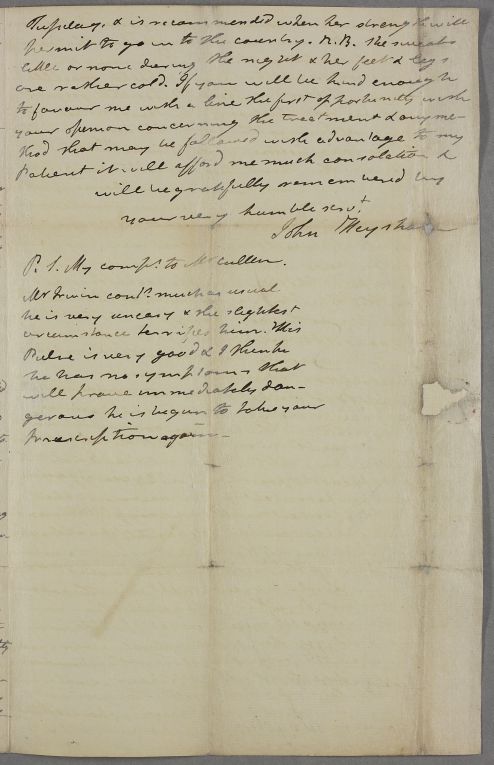 Tuesday, & is recommended when her strength will
permit to go in to the country. N.B. She sweats
little or none during the night & her feet & legs
are rather cold. If you will be kind enough
to favour me with a line the first opportunity with
your opinion concerning the treatment & any me-
thod that may be followed with advantage to my
Patient it will afford me much consolation &
will be gratefully remembered by
your very humble servt.
John Heysham
P.S. My compts. to Mr Cullen.
Mr Irwin conts. much as usual
he is very uneasy & the slightest
circumstance terrifies him. His
Pulse is very good & I think
he has no symptoms that
will prove immediately dan-
gerous he is begun to take your
prescription again